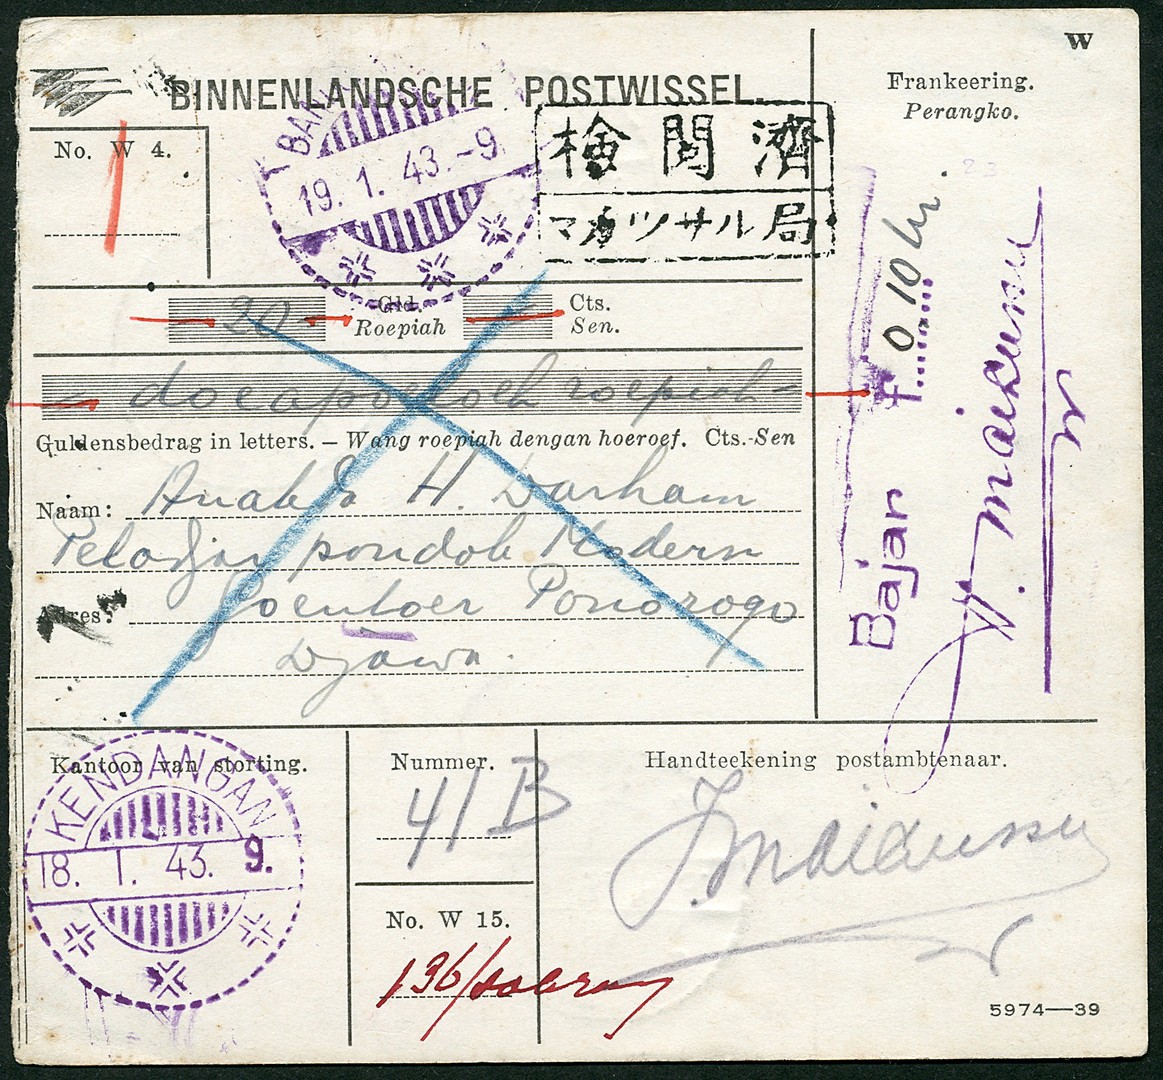 W
BINNENLANDSCHE POSTWISSEL.
Frankeering.
Perangko.
No. W 4.
BAN
19. 1. 43.-9.
検閲済
マカッサル局
20 Gld. Cts.
Roepiah Sen.
doeapoeloeh roepiah
Guldensbedrag in letters. – Wang roepiah dengan hoeroef. Cts.-Sen
Naam: H. Darham
Peladjar pondok Modern
Adres: Goentoer Ponorogo
Djawa.
Bajar f. 0 10
Kantoor van storting.
KENDANGAN
18. 1. 43. 9.
Nummer.
41 B
No. W 15.
136/
Handteekening postambtenaar.
5974—39